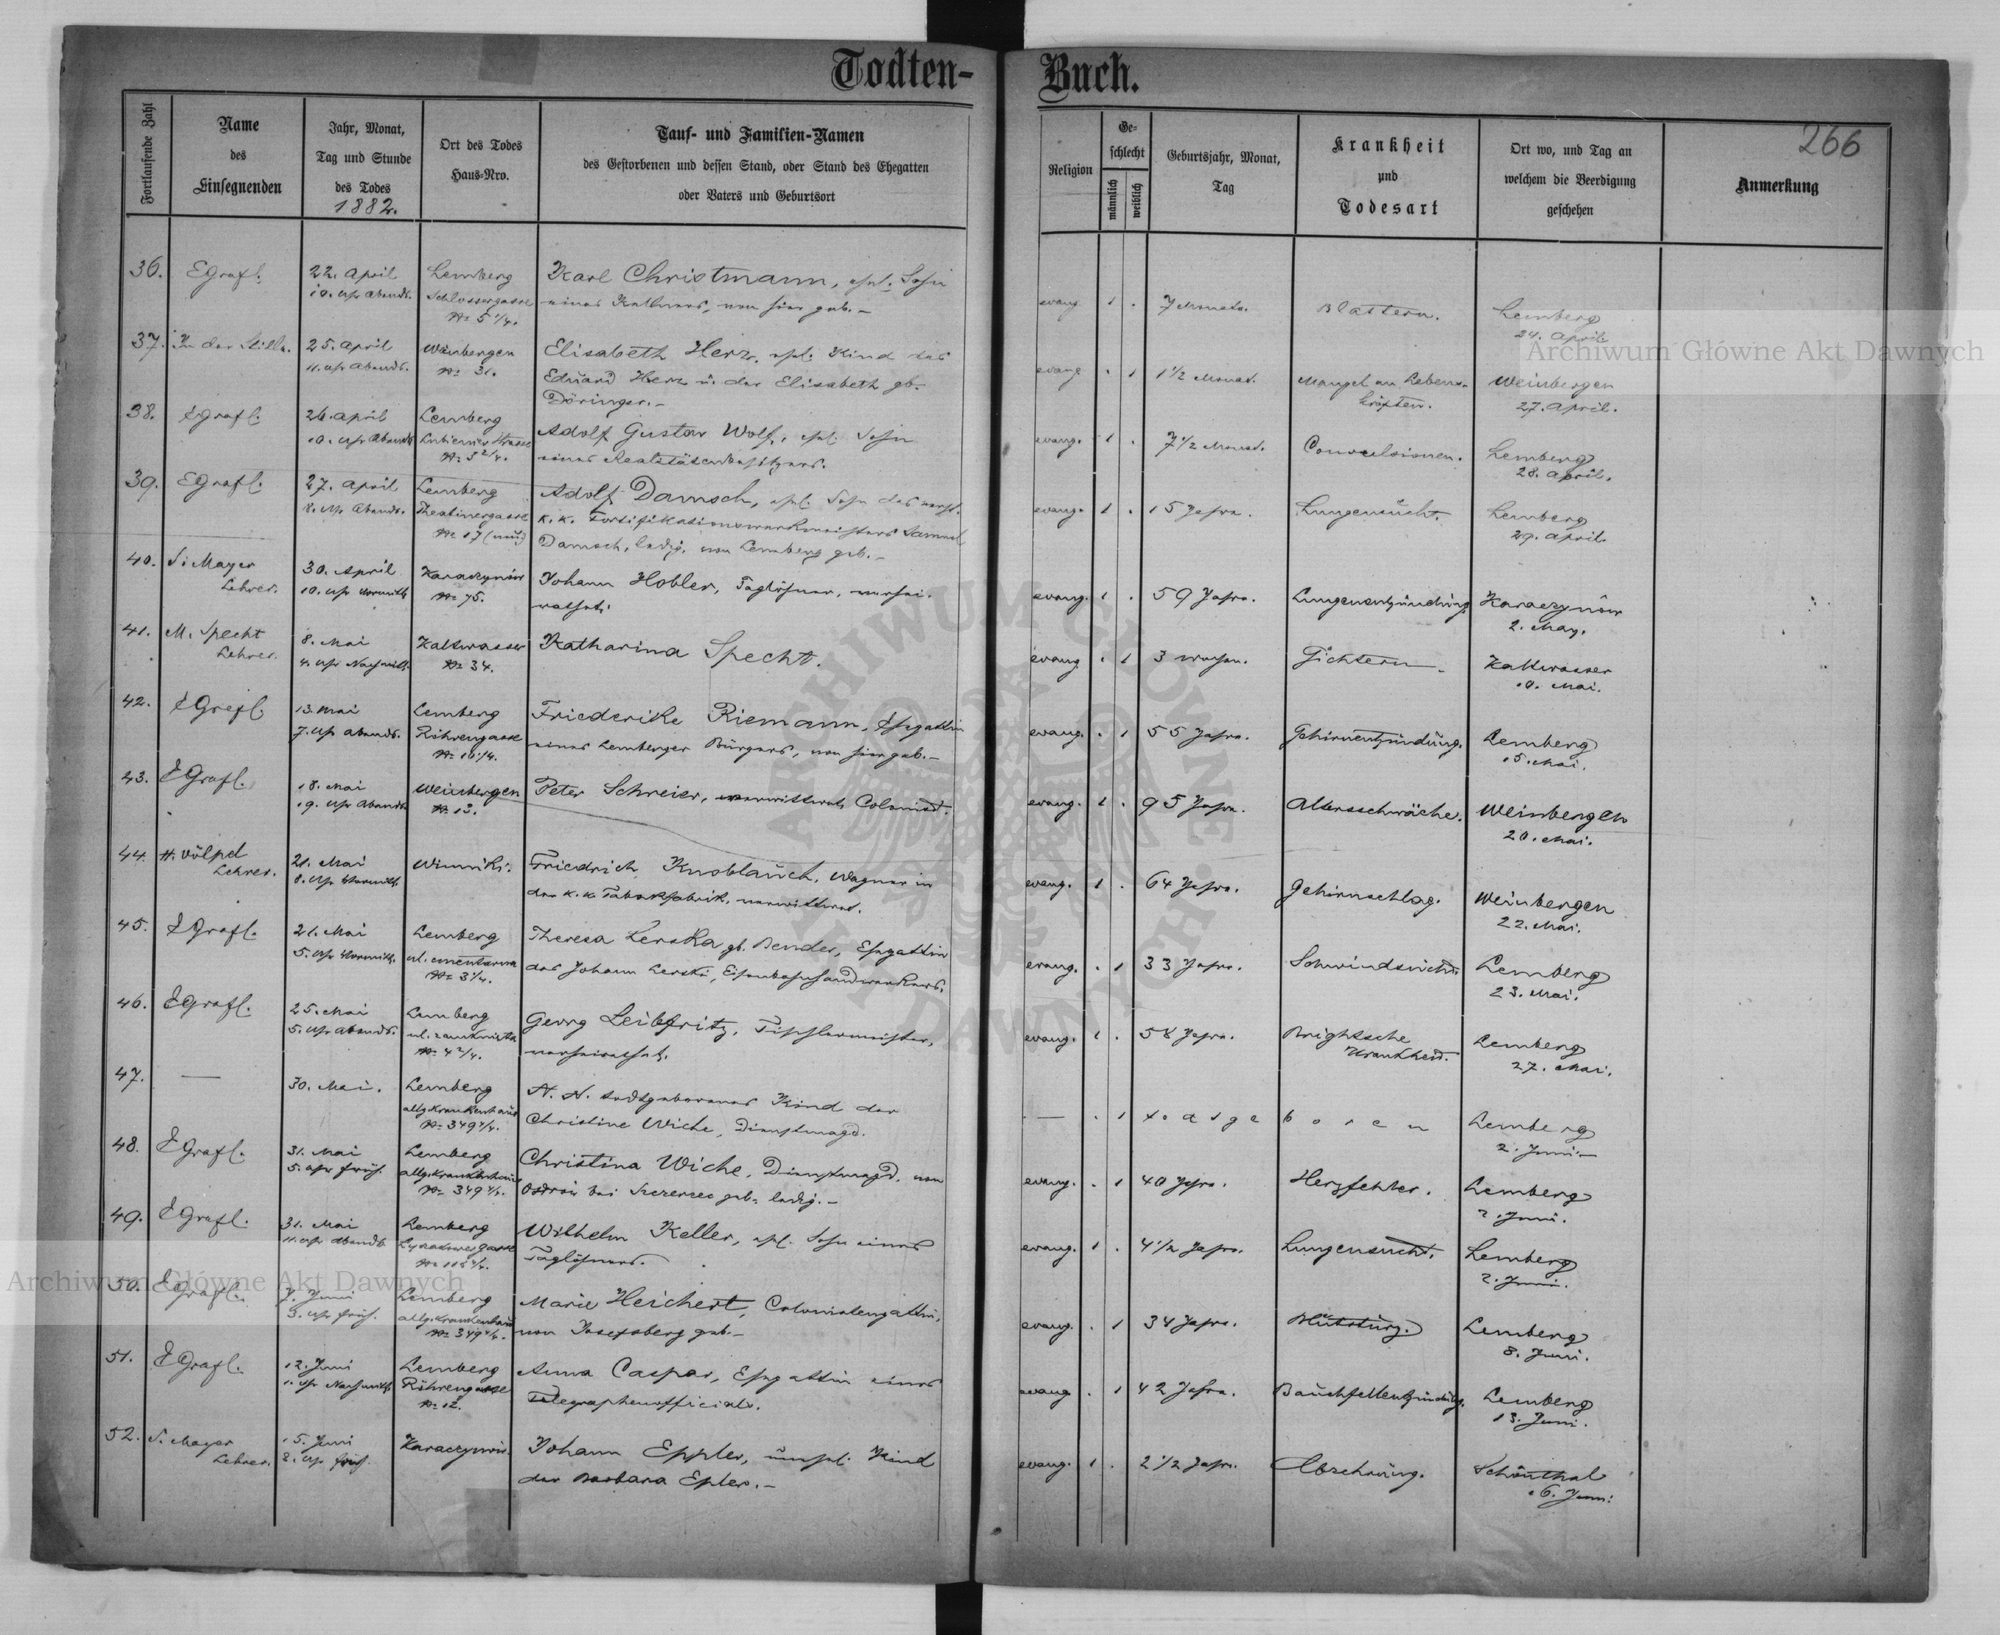 Todten-
Buch.
266
Fortlaufende Zahl
Name
des
Einsegnenden
Jahr, Monat,
Tag und Stunde
des Todes
1882.
Ort des Todes
Haus-Nro.
Tauf- und Familien-Namen
des Gestorbenen und dessen Stand, oder Stand des Ehegatten
oder Vaters und Geburtsort
Religion
Ge-
schlecht
männlich
weiblich
Geburtsjahr, Monat,
Tag
Krankheit
und
Todesart
Ort wo, und Tag an
welchem die Beerdigung
geschehen
Anmerkung
36. EGrafl. 22. April Lemberg Karl Christmann, ehel. Sohn
10. Uhr Abends. Schlossergasse eines Kellners, von hier geb. –
№ 5 1/4.
evang. 1 . 7 Monate. Blattern. Lemberg
24. April.
37. In der Stille. 25. April Weinbergen Elisabeth Herz, ehel. Kind des
11. Uhr Abends. № 31. Eduard Herz u. der Elisabeth gb.
Döringer. –
evang . 1 1 1/2 Monat. Mangel an Lebens- Weinbergen
kräften. 27. April.
38. EGrafl. 26. April Lemberg Adolf Gustav Wolf, ehel. Sohn
10. Uhr Abends № 5 2/4. eines Realitätenbesitzers.
evang. 1 . 7 1/2 Monat. Convulsionen. Lemberg
28. April.
39. EGrafl. 27. April Lemberg Adolf Damsch, ehel. Sohn des verst.
8. Uhr Abends. Theatinergasse k. k. Fortifikationswerkmeisters Samuel
№ 17 (neu) Damsch, ledig, von Lemberg geb. –
evang. 1 . 15 Jahre. Lungensucht. Lemberg
29. April.
40. S. Mayer 30. April Karaczynów Johann Hobler, Taglöhner, verhei-
Lehrer. 10. Uhr Vormitt. № 75. rathet.
evang. 1 . 59 Jahre. Lungenentzündung Karaczynów
2. May.
41. M. Specht 8. Mai Kaltwasser Katharina Specht.
Lehrer. 4. Uhr Nachmitt. № 34.
evang . 1 3 Wochen. Gichtern. Kaltwasser
10. Mai.
42. EGrafl. 13. Mai Lemberg Friederike Riemann, Ehegattin
7. Uhr Abends. Röhrengasse eines Lemberger Bürgers, von hier geb. –
evang. . 1 55 Jahre. Gehirnentzündung. Lemberg
15. Mai.
43. EGrafl. 18. Mai Weinbergen Peter Schreier, verwittweter Colonist.
Uhr Abends № 13.
evang. 1 . 95 Jahre. Altersschwäche. Weinbergen
20. Mai.
44. H. Völpel 21. Mai Winniki. Friedrich Knoblauch, Wagner in
Lehrer. 8. Uhr Vormitt. der k. k. Tabakfabrik, verwittwet.
evang. 1 . 64 Jahre. Gehirnschlag. Weinbergen
22. Mai.
45. EGrafl. 21. Mai Lemberg Theresa Lerska gb. Bender, Ehegattin
5. Uhr Vormitt. ul. cmentarna des Johann Lerski, Eisenbahnhandwerkers.
№ 3 1/4.
evang. . 1 33 Jahre. Schwindsucht. Lemberg
23. Mai.
46. EGrafl. 25. Mai Lemberg Georg Leibfritz, Tischlermeister,
5. Uhr Abends. № 4 2/4. verheirathet.
evang. 1 . 58 Jahre. Brightsche Lemberg
Krankheit. 27. Mai.
47. — 30. Mai. Lemberg N. N. todtgeborenes Kind der
allg. Krankenhaus Christine Wiche, Dienstmagd.
№ 349 4/4.
— . 1 todtgeboren Lemberg
2. Juni –
48. EGrafl. 31. Mai Lemberg Christina Wiche, Dienstmagd, von
5. Uhr früh. allg. Krankenhaus bei Szczerzec geb. ledig. –
№ 349 4/4.
evang. . 1 40 Jahre. Herzfehler. Lemberg
2. Juni.
49. EGrafl. 31. Mai Lemberg Wilhelm Keller, ehel. Sohn eines
11. Uhr Abends Taglöhners.
evang. 1 . 4 1/2 Jahre. Lungensucht. Lemberg
2. Juni.
50. EGrafl. 7. Juni Lemberg Marie Heichert, Colonistengattin,
3. Uhr früh. allg. Krankenhaus von Josefsberg geb. –
№ 349 4/4.
evang. . 1 34 Jahre. Blutsturz. Lemberg
8. Juni.
51. EGrafl. 12. Juni Lemberg Anna Caspar, Ehegattin eines
1. Uhr Nachmitt. Röhrengasse Telegraphenofficials.
№ 12.
evang . 1 42 Jahre. Bauchfellentzündung. Lemberg
13. Juni.
52. S. Mayer 15. Juni Karaczynów. Johann Eppler, unehel. Kind
Lehrer. 2. Uhr früh. der Barbara Epler. –
evang. 1 . 2 1/2 Jahre. Abzehrung. Schönthal
16. Juni.
Archiwum Główne Akt Dawnych
Archiwum Główne Akt Dawnych
ARCHIWUM GŁÓWNE AKT DAWNYCH